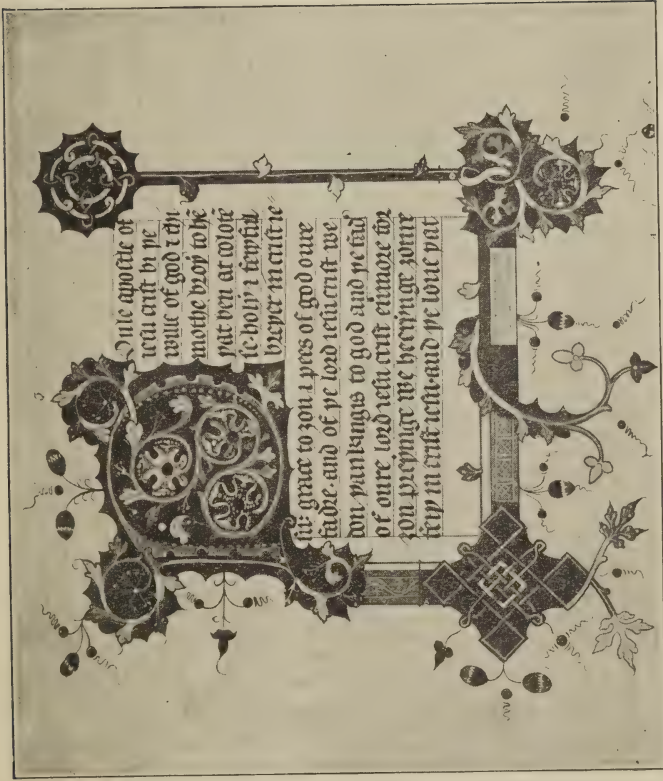 Oule apostle of
iesu crist bi þe
wille of god ⁊ thi
mothe broþ to hē
þat ben at colose
se holy ⁊ feyþful
breþer in crist ie
su: grace to ȝou ⁊ pees of god oure
fadir · and of þe lord iesu crist we
don þankingis to god and þe fad'
of oure lord iesu crist euimore for
ȝou preiynge we heerynge ȝoure
feiþ in crist iesu · and þe loue þat